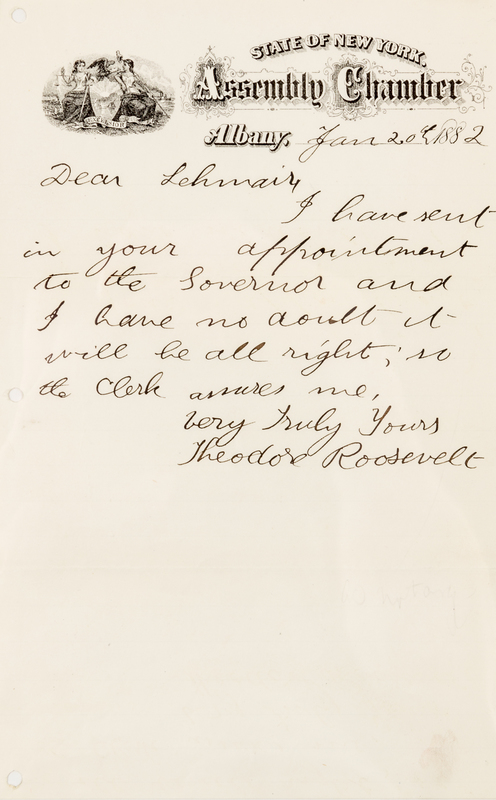 STATE OF NEW YORK.
Assembly Chamber
Albany, Jan 20th 1882
Dear Lehmair,
I have sent
in your appointment
to the Governor and
I have no doubt it
will be all right; so
the Clerk assures me,
Very Truly Yours
Theodore Roosevelt